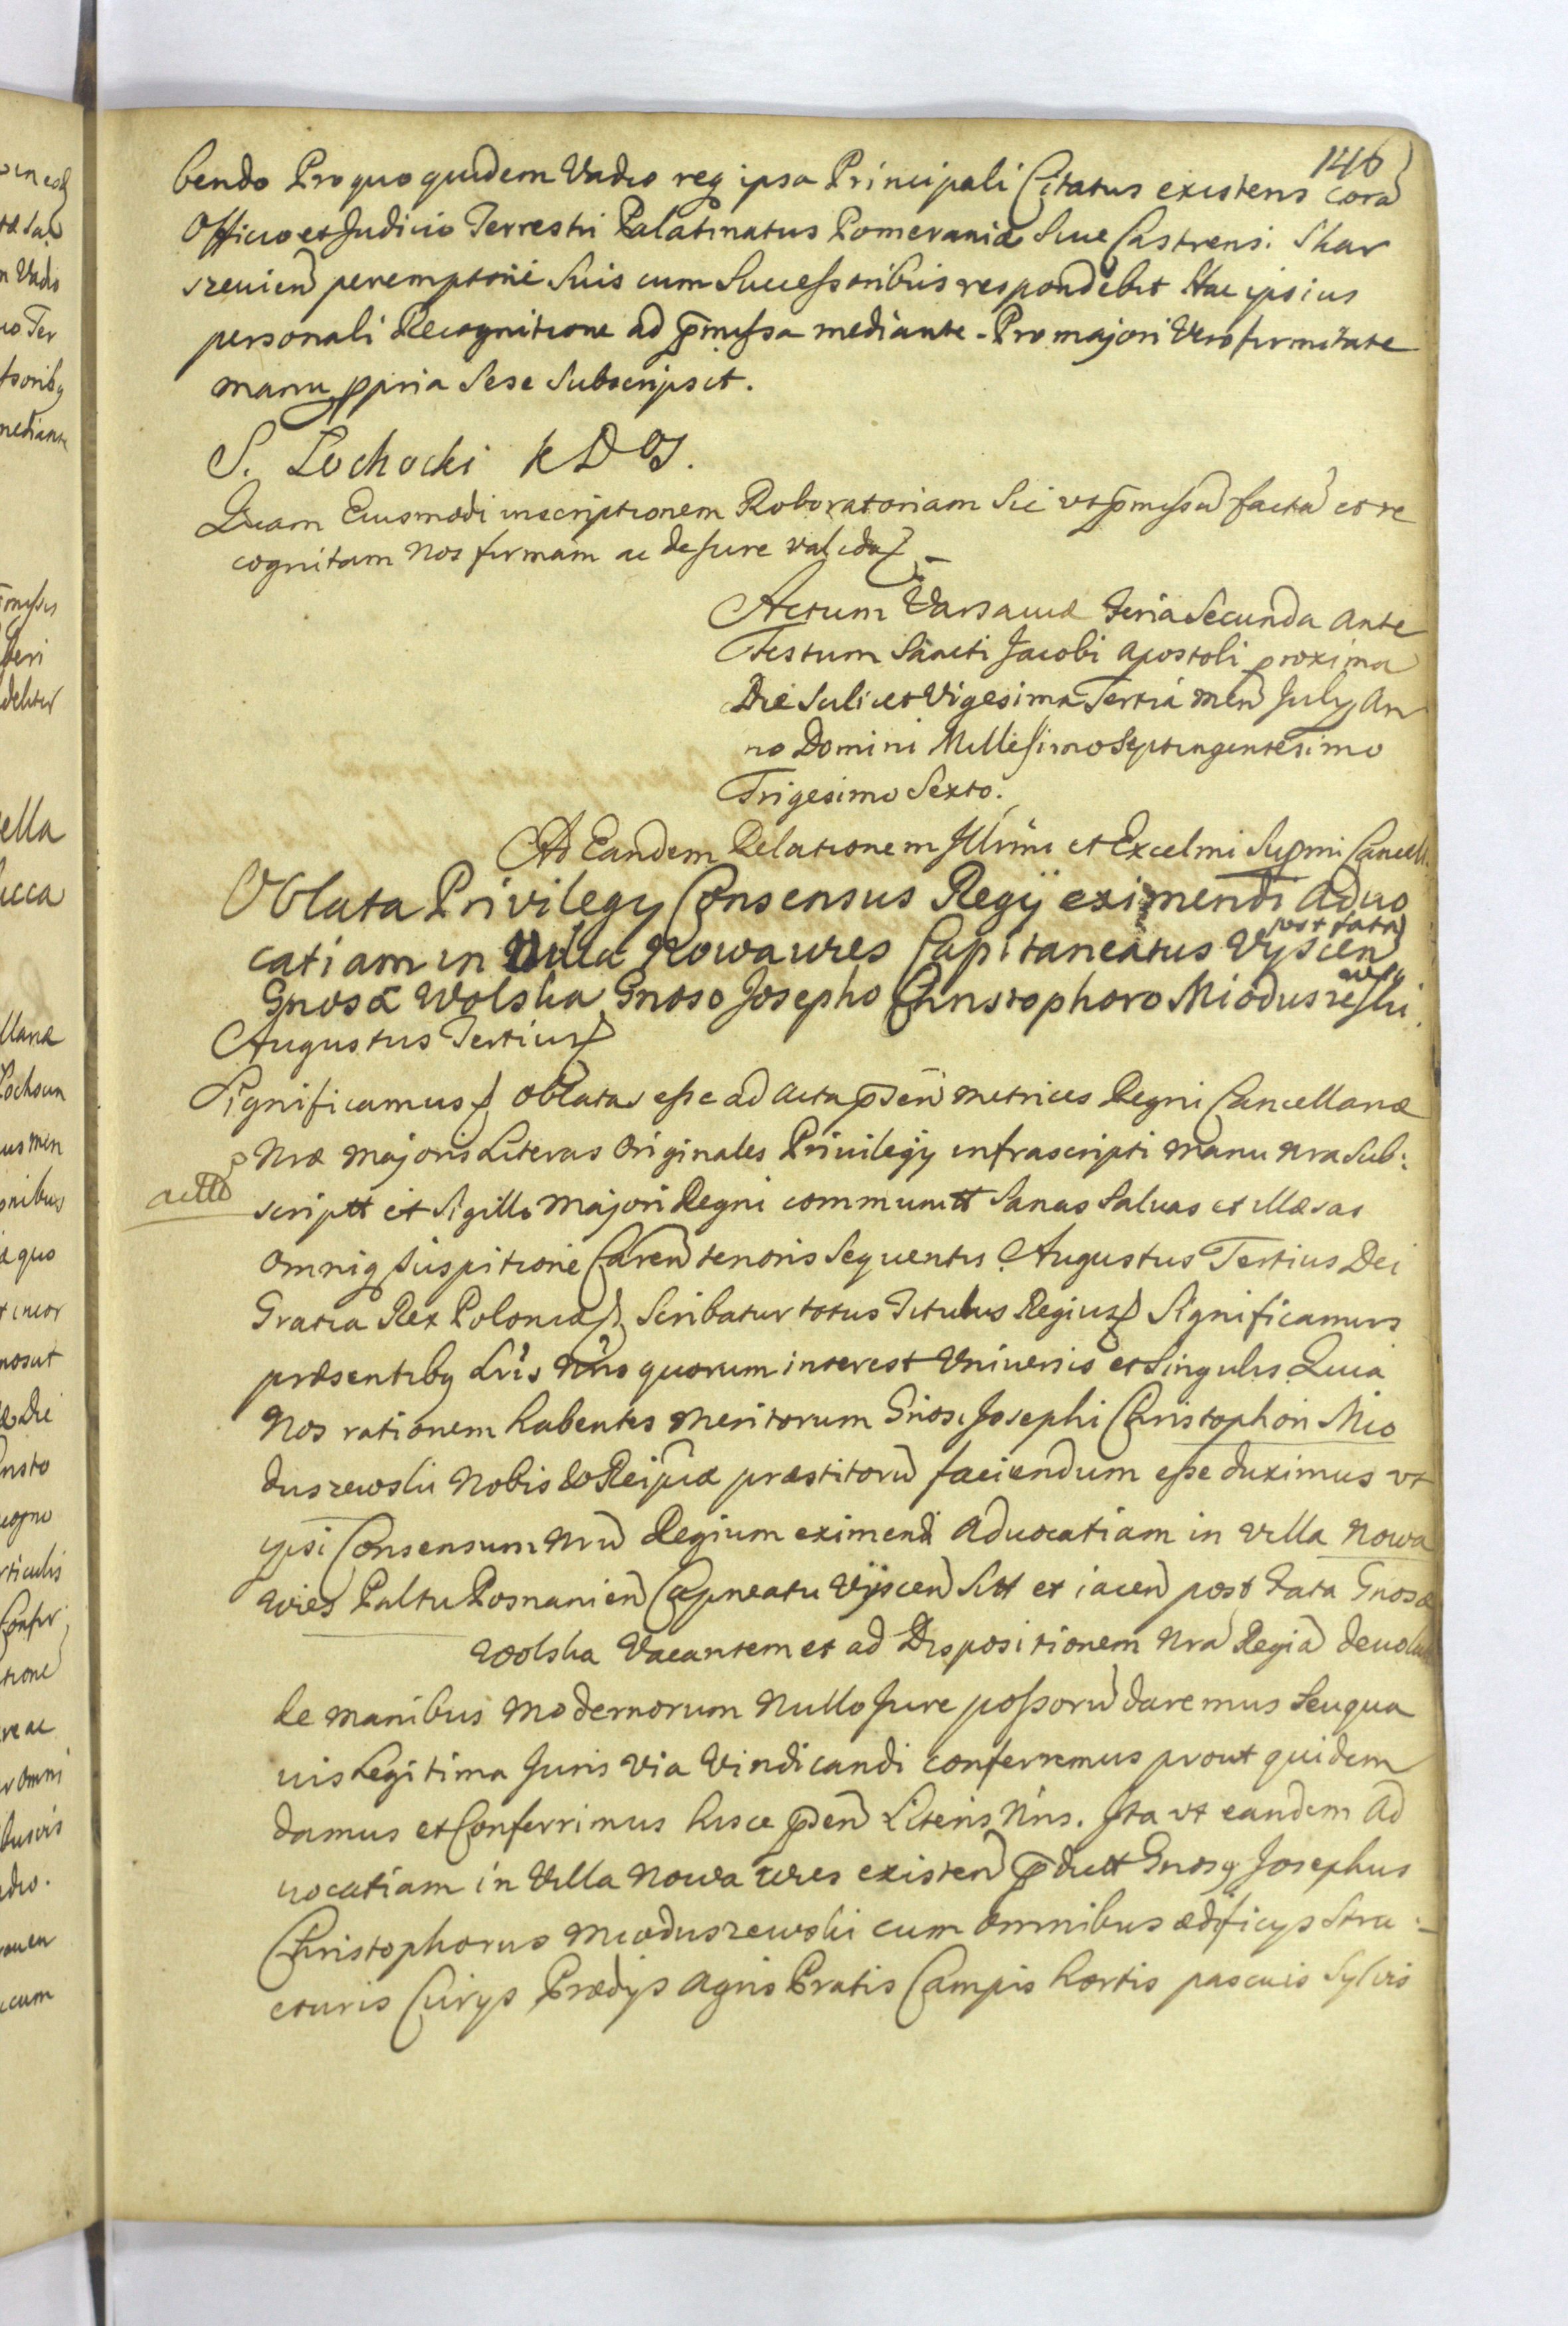 146
bendo Pro quo quidem Vadio req ipsa Principali Citatus existens corã
Officio et Judicio Terrestri Palatinatus Pomeraniæ Siue Castrensi Skar
szeuien̄ peremptorie Suis cum Successoribus respondebit Hac ipsius
personali Recognitione ad p̄missa mediante. Pro majori Vero firmitate
manu ppria Sese Subscripsit.
S. Lochocki
Quam Eiusmodi inscriptionem Roboratoriam Sic vt p̄missũ factã et re
cognitam Nos firmam ac de Jure valida
Actum Varsauiæ Feria Secunda ante
Festum Sancti Jacobi Apostoli proxima
Die Scilicet Vigesima Tertia men̄ July An
no Domini Millesimo Septingentesimo
Trigesimo Sexto.
Ad Eandem Relationem Illr̄mi et Excelmi Supmi Cancell.
Oblata Privilegy Consensus Regij eximendi Aduo
catiam in Villa Nowawies Capitaneatus Vyscen̄ post fata
Gnosæ Wolska Gnoso Josepho Christophoro Mioduszewski
Augustus Tertius
Significamus oblatas esse ad Acta p̄sen̄ metrices Regni Cancellariæ
Nræ Majoris Literas Originales Priuilegij infrascripti manu nra Sub:
scriptt et Sigillo Majori Regni communitt Sanas Saluas et illæsas
omniq Suspitione Caren̄ tenoris Sequentis. Augustus Tertius Dei
Gratia Rex Poloniæ Scribatur totus Titulus Regius Significamus
præsentibq Lris Nris quorum interest Vniuersis et Singulis Quia
Nos rationem habentes Meritorum Gnosi Josephi Christophori Mio
duszewski Nobis & Reipcæ præstitorũ faciendum esse duximus vt
ipsi Consensum Nrũ Regium eximendi Aduocatiam in villa Nowa
wies Paltu Posnanien̄ Capneatu Vyscen̄ Sitt et iacen̄ post fata Gnosæ
Wolska Vacantem et ad Dispositionem Nrã Regiã deuolu
de manibus modernorum Nullo Jure possorũ daremus Seu qua
uis Legitima Juris Via Vindicandi conferremus prout quidem
damus et Conferrimus hisce p̄sen̄ Literis Nris. Ita vt eandem Ad
uocatiam in Villa Nowa wies existen̄ p̄dictt Gnosq Josephus
Christophorus Mioduszewski cum omnibus ædificys Stru:
cturis Curys Prædys agris Pratis Campis hortis pascuis Syluis